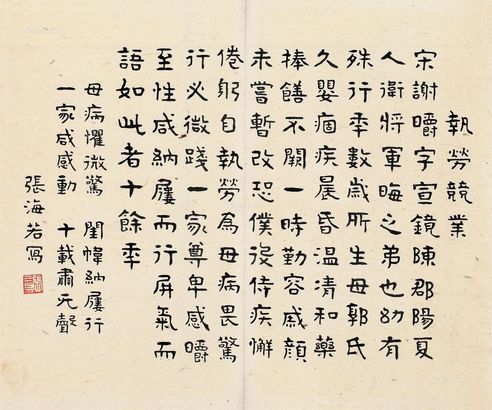 執勞競業
宋謝㬭字宣鏡陳郡陽夏
人衛將軍晦之弟也幼有
殊行秊數歲所生母郭氏
久嬰痼疾晨昏温凊和藥
捧饍不闕一時勤容戚顏
未嘗暫改恐僕役侍疾懈
倦躬自執勞為母病畏驚
行必微踐一家尊卑感㬭
至性咸納屨而行屏氣而
語如此者十餘秊
母病懼微驚 閨幃納屨行
一家咸感動 十載肅无聲
張海若寫